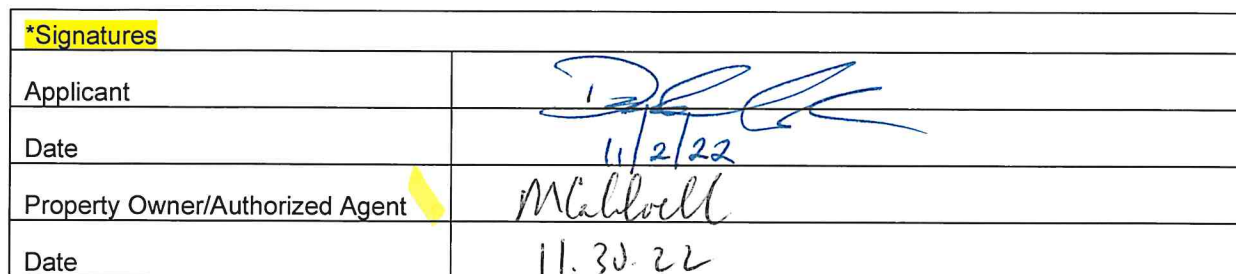 *Signatures
Applicant
Date 11/2/22
Property Owner/Authorized Agent MCaldwell
Date 11.30.22